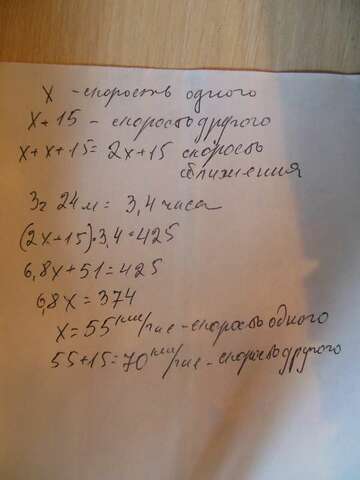 x - скорость одного
x+15 - скорость другого
x+x+15=2x+15 скорость
сближения
3ч 24м = 3,4 часа
(2x+15)·3,4=425
6,8x+51=425
6,8x=374
x=55 км/час - скорость одного
55+15=70 км/час - скорость другого